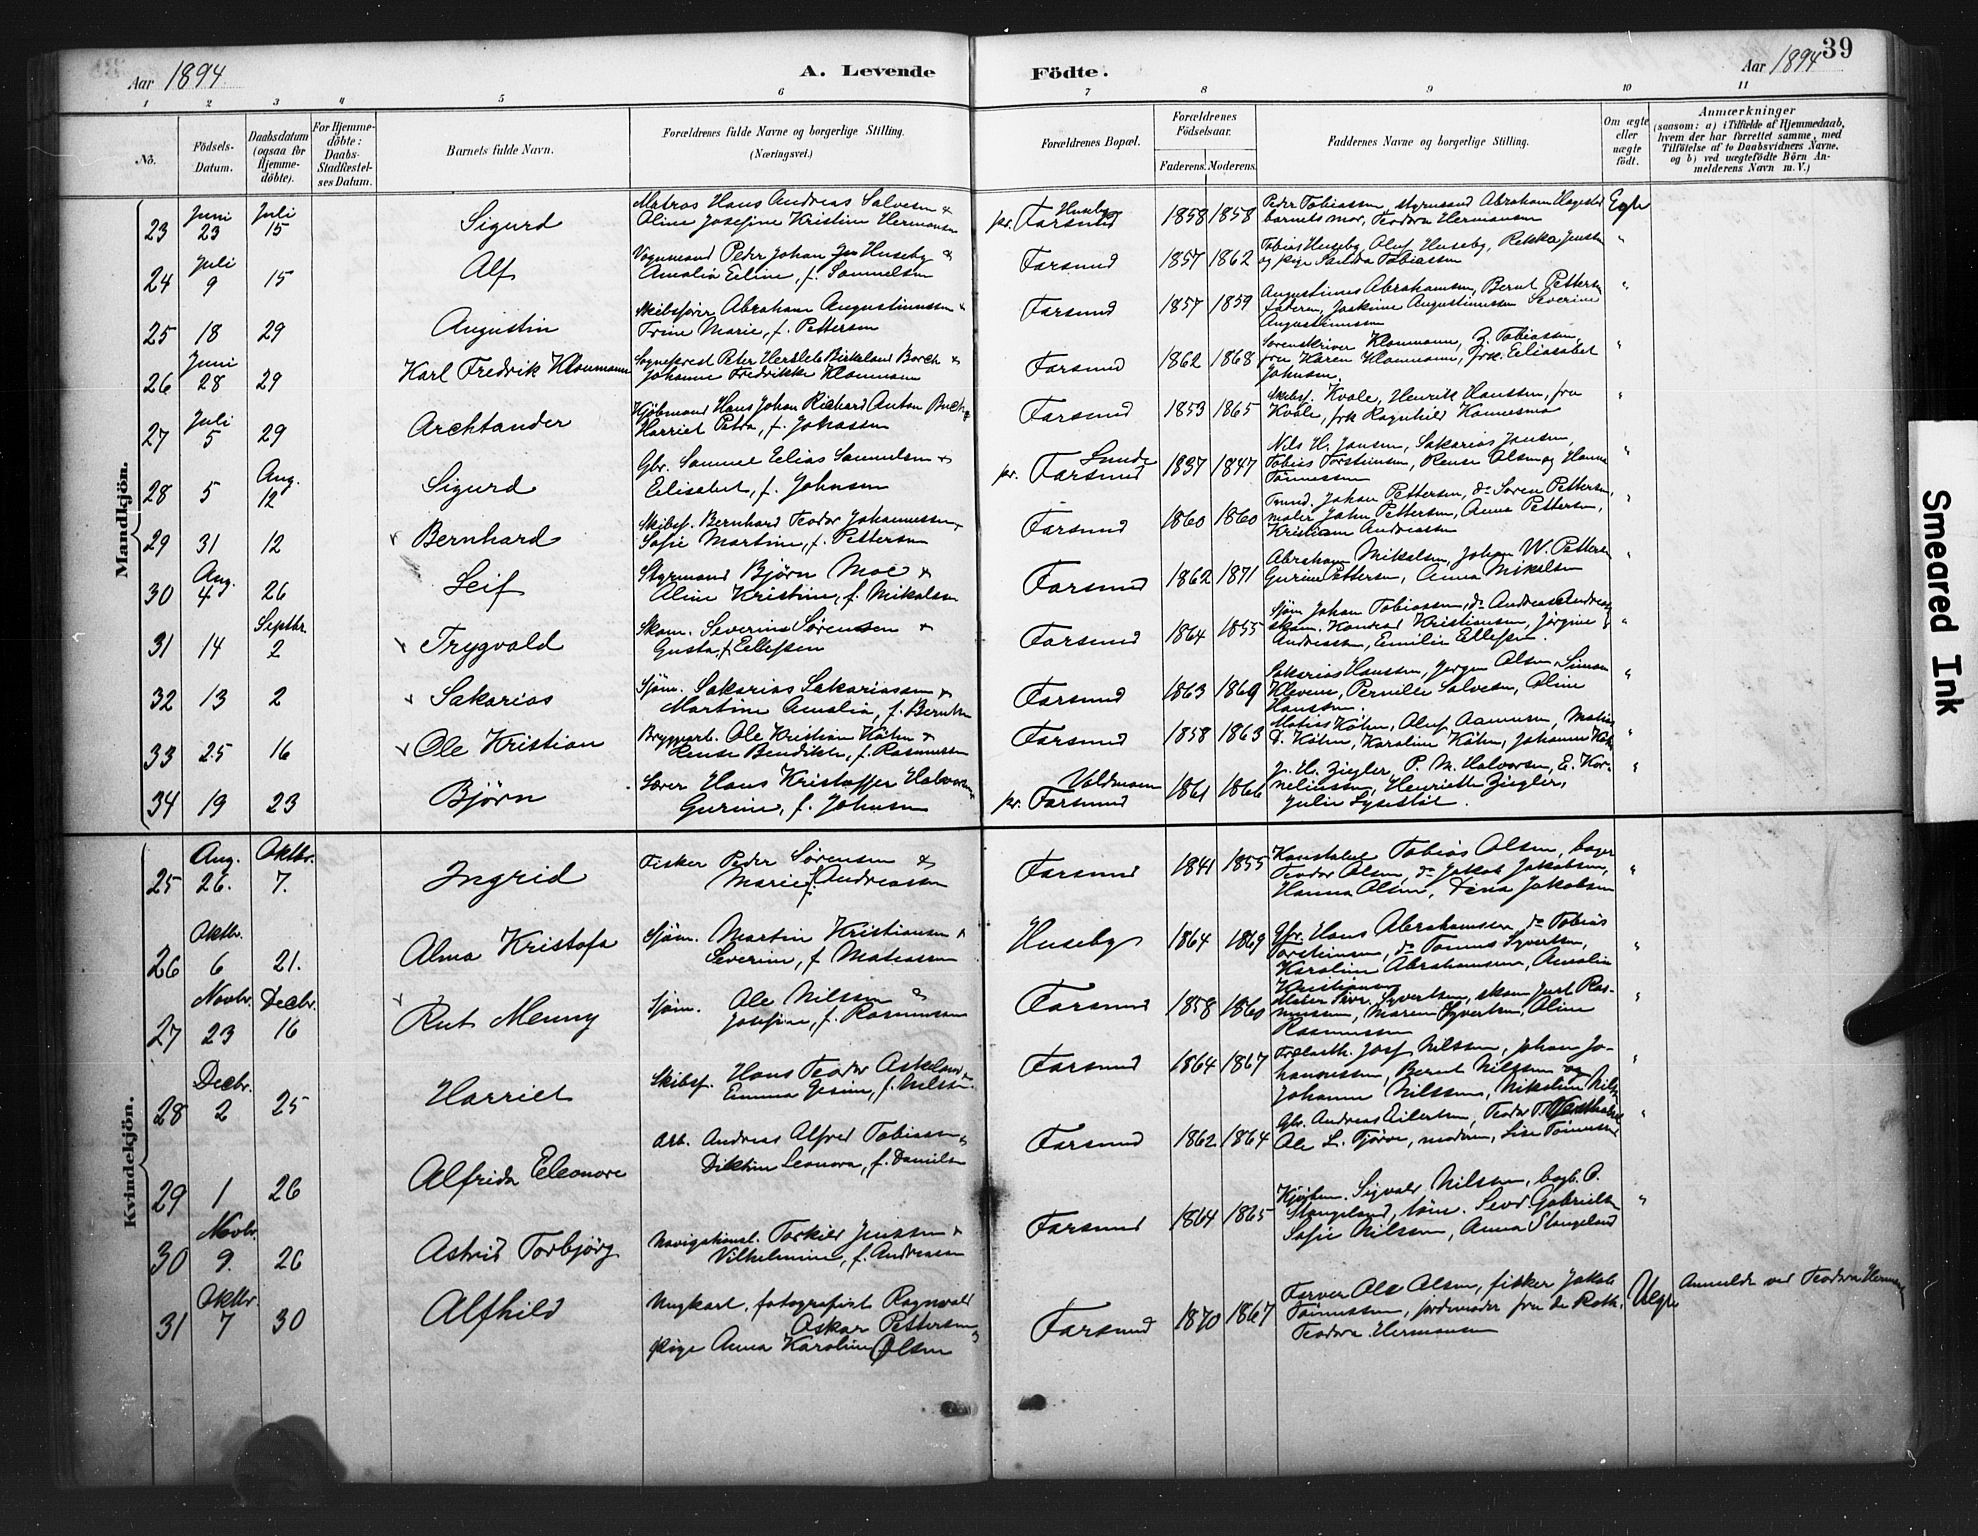 Aar 1894
A. Levende Födte.
Aar 1894
39
1 2 3 4 5 6 7 8 9 10 11
No.
Födsels-Datum.
Daabsdatum (ogsaa for Hjemme-döbte).
For Hjemme-döbte: Daabs-Stadfæstel-ses Datum.
Barnets fulde Navn.
Forældrenes fulde Navne og borgerlige Stilling. (Næringsvei.)
Forældrenes Bopæl.
Forældrenes Födselsaar.
Faderens. Moderens.
Faddernes Navne og borgerlige Stilling.
Om ægte eller uægte födt.
Anmærkninger
(saasom: a) i Tilfælde af Hjemmedaab, hvem der har forrettet samme, med Tilföielse af to Daabsvidners Navne, og b) ved uægtefödte Börn An-melderens Navn m. V.)
Mandkjön.
23 Juni 23 Juli 15 Sigurd Matros Hans Andreas Salvesen & Oline Josefine Kristine Hermansen Huseby pr. Farsund 1858 1858 Peder Tobiassen, styrmand Abraham Hagested barnets mor, Teodora Hermansen Egte
24 Juli 9 15 Alf Vognmand Peder Johan Huseby & Amalia Eline, f. Samuelsen Farsund 1857 1862 Tobias Huseby, Oluf Huseby, Rekka Jensen og pige Tobiassen "
25 18 29 Augustin Skibsfører Abraham Augustinussen & Trine Marie, f. Pettersen Farsund 1857 1859 Augustinus Abrahamsen, Bernt Pettersen faderen, Joakime Augustinussen Severine Augustinussen "
26 Juni 28 29 Karl Fredrik Kloumann Sogneprest Peter Hersleb Birkeland Borch & Johanne Fredrikke Kloumann Farsund 1862 1868 Sorenskriver Kloumann, J. Tobiassen, fru Karen Kloumann, frk. Eliasabet Johnsen. "
27 Juli 5 29 Archtander Kjöbmand Hans Johan Richard Anton Buch & Harriet Petra, f. Johassen Farsund 1853 1865 Skibsf. Kvale, Henrik Hanssen, fru Kvale, frk Ragnhild "
28 5 Aug. 12 Sigurd Gbr. Samuel Elias Samuelsen & Elisabet, f. Johnsen Lunde pr. Farsund 1837 1847 Nils H. Jansen, Sakarias Jansen, Tobias Torstensen, Rense Olsen og Hanna Tönnessen "
29 31 12 Bernhard Skibsf. Bernhard Teodor Johannessen & Sofie Martine, f. Pettersen Farsund 1860 1860 Johan Pettersen, do Soren Pettersen, maler John Pettersen, Anna Pettersen, Kristiane Andreassen "
30 Aug. 4 26 Leif Styrmand Björn Moe & Aline Kristine, f. Mikalsen Farsund 1862 1871 Abraham Mikalsen, Johan W. Pettersen Gurine Pettersen, Anna Mikalsen "
31 14 Septbr. 2 Trygvald Skom. Severin Sørensen & Gusta, f. Ellefsen Farsund 1864 1855 Sjöm Johan Tobiassen, do Andreas Andreas. skom. Konrad Kristiansen, Jörgine Andreassen, Emilie Ellefsen. "
32 13 2 Sakarias Sjöm. Sakarias Sakariassen & Martine Amalia, f. Berntsen Farsund 1863 1869 Sakarias Hanssen, Jörgen Olsen, Simon Klevene, Pernille Salvesen, Oline Hanssen. "
33 25 16 Ole Kristian Bryggearb. Ole Kristian Köhn & Rense Bendikte, f. Rasmussen Farsund 1858 1863 Matias Köhn, Oluf Aanensen, D. Köhn, Karoline Köhn, Johanne Köhn "
34 19 23 Björn Lærer Hans Kristoffer Halvorsen & Gurine, f. Johnsen Voldmoen pr. Farsund 1861 1866 J. H. Ziegler, P. M. Halvorsen, E. Kor-neliussen, Henriette Ziegler, Julie "
Kvindekjön.
25 Aug. 26. Oktbr. 7. Ingrid Fisker Peder Sørensen & Marie f. Andreassen Farsund 1841 1855 Konstabel Tobias Olsen, bager Teodor Olsen, do Jakob Jakobsen, Hanna Olsen, Dina Jakobsen "
26 Oktbr. 6 21. Alma Kristofa Sjöm. Martin Kristiansen & Severine, f. Mateassen Huseby 1864 1869 Gbr. Hans Abrahamsen, do Tobias Torstensen, do Tomas Syvertsen, Karoline Abrahamsen, Amalie Kristiansen "
27 Novbr. 23 Decbr. 16 Rut Menny Sjöm. Ole Nilssen & Josefine, f. Rasmussen Farsund 1858 1860 Maler Syvertsen, skom Just Ras-mussen, Maren Syvertsen, Oline Rasmussen "
28 Decbr. 2 25 Harriet Skibsf. Hans Teodor Askeland & Emma Gesine, f. Nilssen Farsund 1864 1867 Josef Nilssen, Johan Jo-hannessen, Bernt Nilssen og Johanne Nilssen, Nikoline Nilss. "
29 1 26 Alfrida Eleonore Arb. Andreas Alfred Tobiassen & Diktine Leonora, f. Danielsen Farsund 1862 1864 Gbr. Andreas Eilertsen, Teodor Ole L. Tjörve, moderen, Lise Tönnessen "
30 Novbr. 9. 26 Astrid Torbjörg Navigationsl. Torkild Jenssen & Vilhelmine, f. Andreassen Farsund 1864 1865 Kjöbm. Sigvald Nilssen, bagb. O. Stangeland, töm. Sevd Gabrielsen Sofie Nilssen, Anna Stangeland "
31 Oktbr. 7 30 Alfhild Ungkarl, fotografist Ragnvald Oskar Pettersen & Pige Anna Karoline Olsen Farsund 1870 1867 Farver Ole Olsen, fisker Jakob Tönnessen, jordmoder fru de Roth, Teodora Hermansen Uegte Anmeldt ved Teodora Hermansen
Smeared Ink